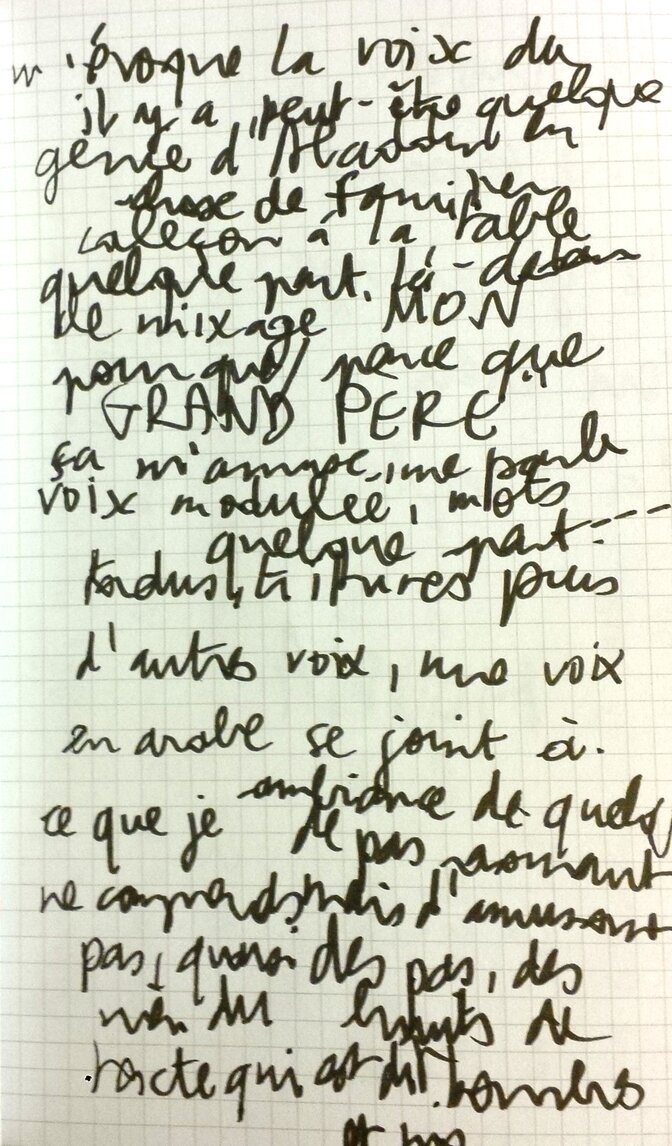 m'évoque la voix du
il y a peut-être quelque
génie d'Aladdin en
chose de familier
caleçon à la table
quelque part, là-dedans
de mixage MON
pourquoi parce que
GRAND PÈRE
ça m'amuse, me parle
voix modulée, mots
quelque part...
tordus, triturés puis
d'autres voix, une voix
en arabe se joint à.
ambiance de quelq
ce que je
de pas assommant
ne comprends mais d'amusant
pas, quasi des pas, des
rien du bruits de
texte qui est dit
et pas